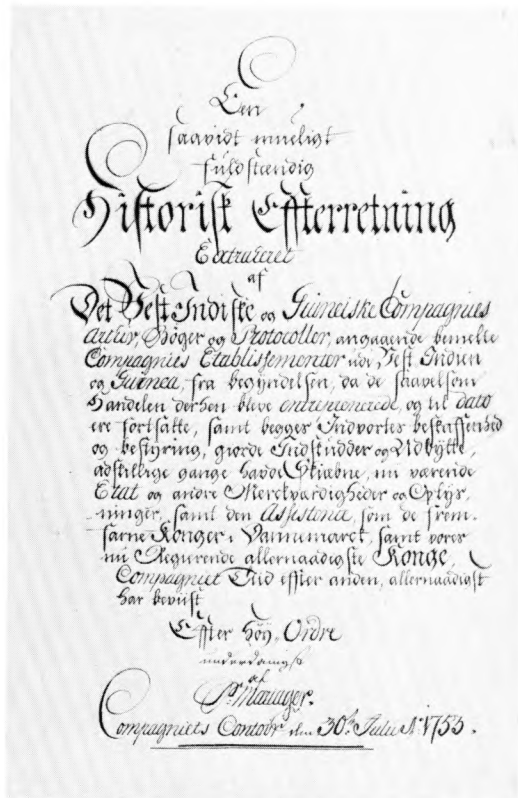 Een
saavidt mueligt
fuldstændig
Historisk Effterretning
Extraheret
af
Det Vest Indiske og Guineiske Compagnies
Acter, Bøger og Protocoller, angaaende bemelte
Compagnies Etablissementer udi Vest Indien
og Guinea, fra begyndelsen, da de saavelsom
Handelen derhen bleve entreprenerede, og til dato
ere fortsatte, samt begges Indvortes beskaffenhed
og bestyring, giorde Indskudder og Udbytte,
adskillige gange havde Skiæbne, nu værende
Etat og andre Merckværdigheder og Oplys,
ninger, samt den Assistence, som de frem,
farne Konger i Dannemarck, samt vores
nu Regierende allernaadigste Konge,
Compagniet Tiid effter anden, allernaadigst
har beviist
Effter høy, Ordre
underdanigst
af
P. Mariager.
Compagniets Contoir den 30te Julii A: 1753.